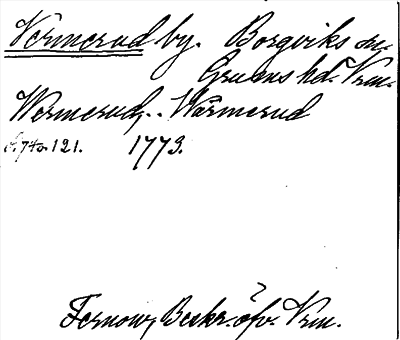 Värmerud by. Borgviks sn.
Grums hd. Vrm.
Wermerud, Wärmerud
s. 74 o. 121. 1773.
Fernow, Beskr. öfv. Vrm.